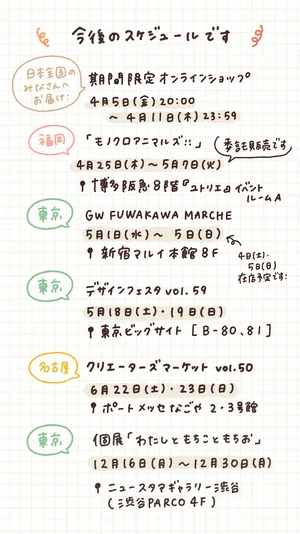 今後のスケジュールです
日本全国の
みなさんへ
お届け！
期間限定オンラインショップ
4月5日(金)20:00
～ 4月11日(木)23:59
福岡
「モノクロアニマルズ!!」
委託販売です
4月25日(木)～5月7日(火)
博多阪急8階『ユトリエ』イベント
ルームA
東京
GW FUWAKAWA MARCHE
5月1日(水)～ 5日(日)
新宿マルイ本館8F
4日(土)・
5日(日)
在店予定です！
東京
デザインフェスタvol.59
5月18日(土)・19日(日)
東京ビッグサイト [B-80、81]
名古屋
クリエーターズマーケット vol.50
6月22日(土)・23日(日)
ポートメッセなごや 2・3号館
東京
個展「わたしともちこともちお」
12月16日(月)～12月30日(月)
ニュースタアギャラリー渋谷
(渋谷PARCO 4F)